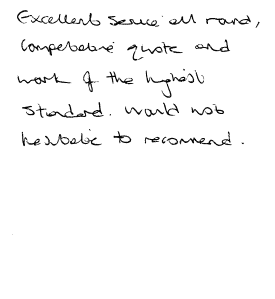 Excellent service all round,
Competitive quote and
work of the highest
standard. Would not
hesitate to recommend.